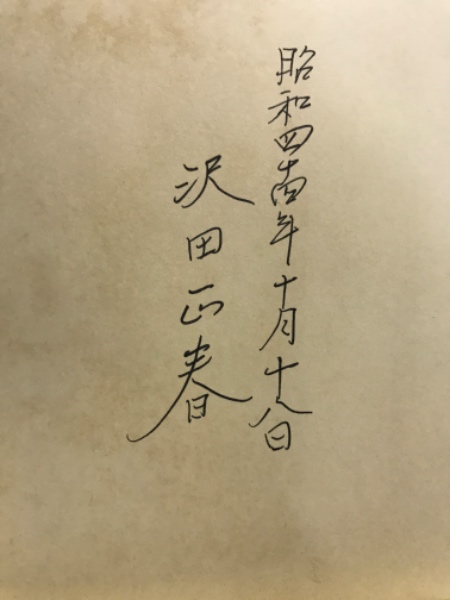 昭和四十四年十月十八日
沢田正春